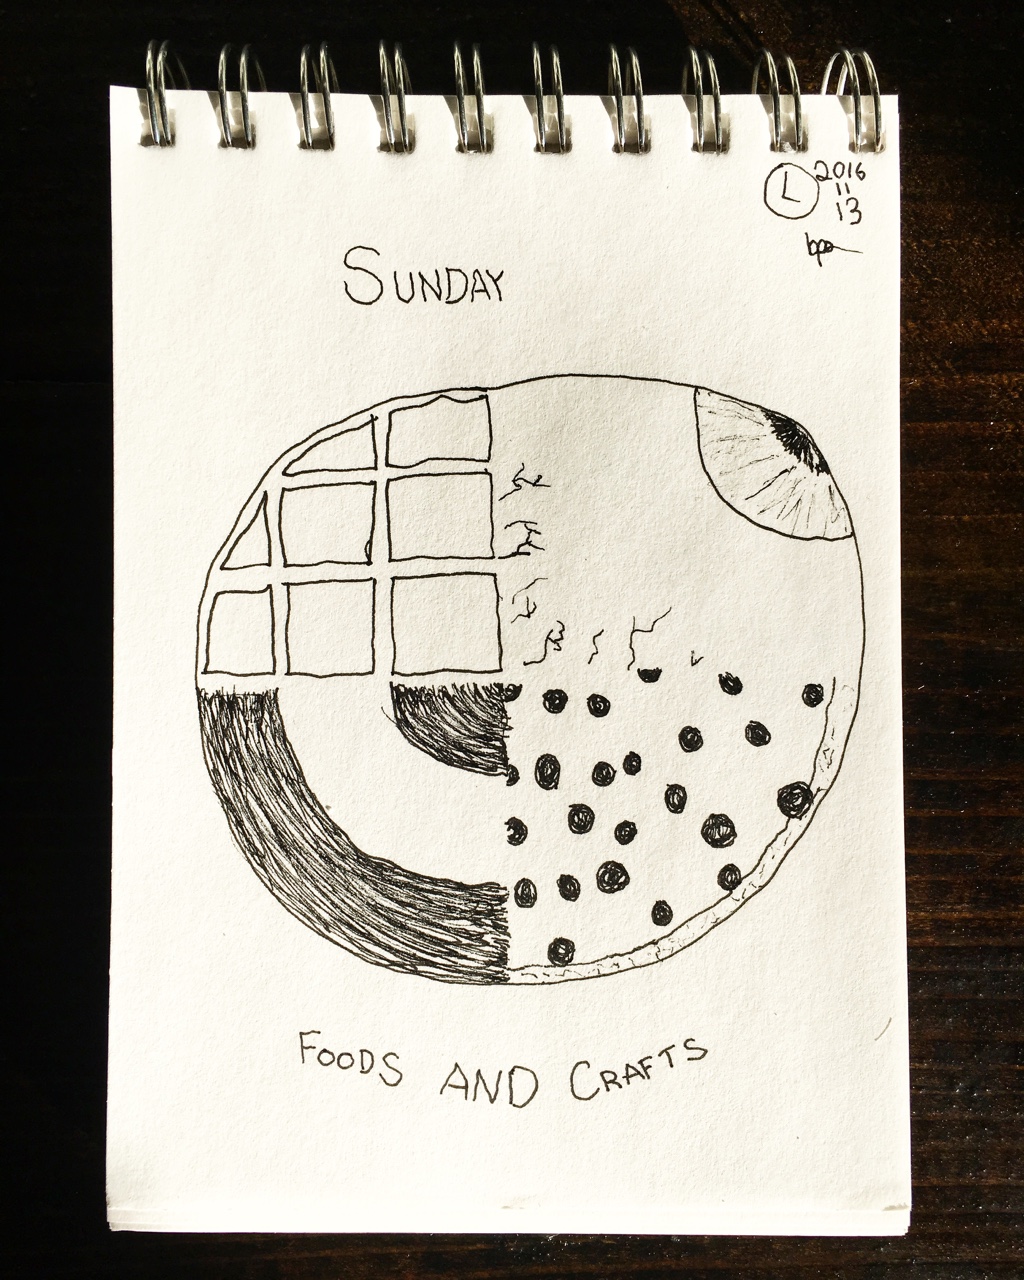 L 2016
11
13
SUNDAY
FOODS AND CRAFTS